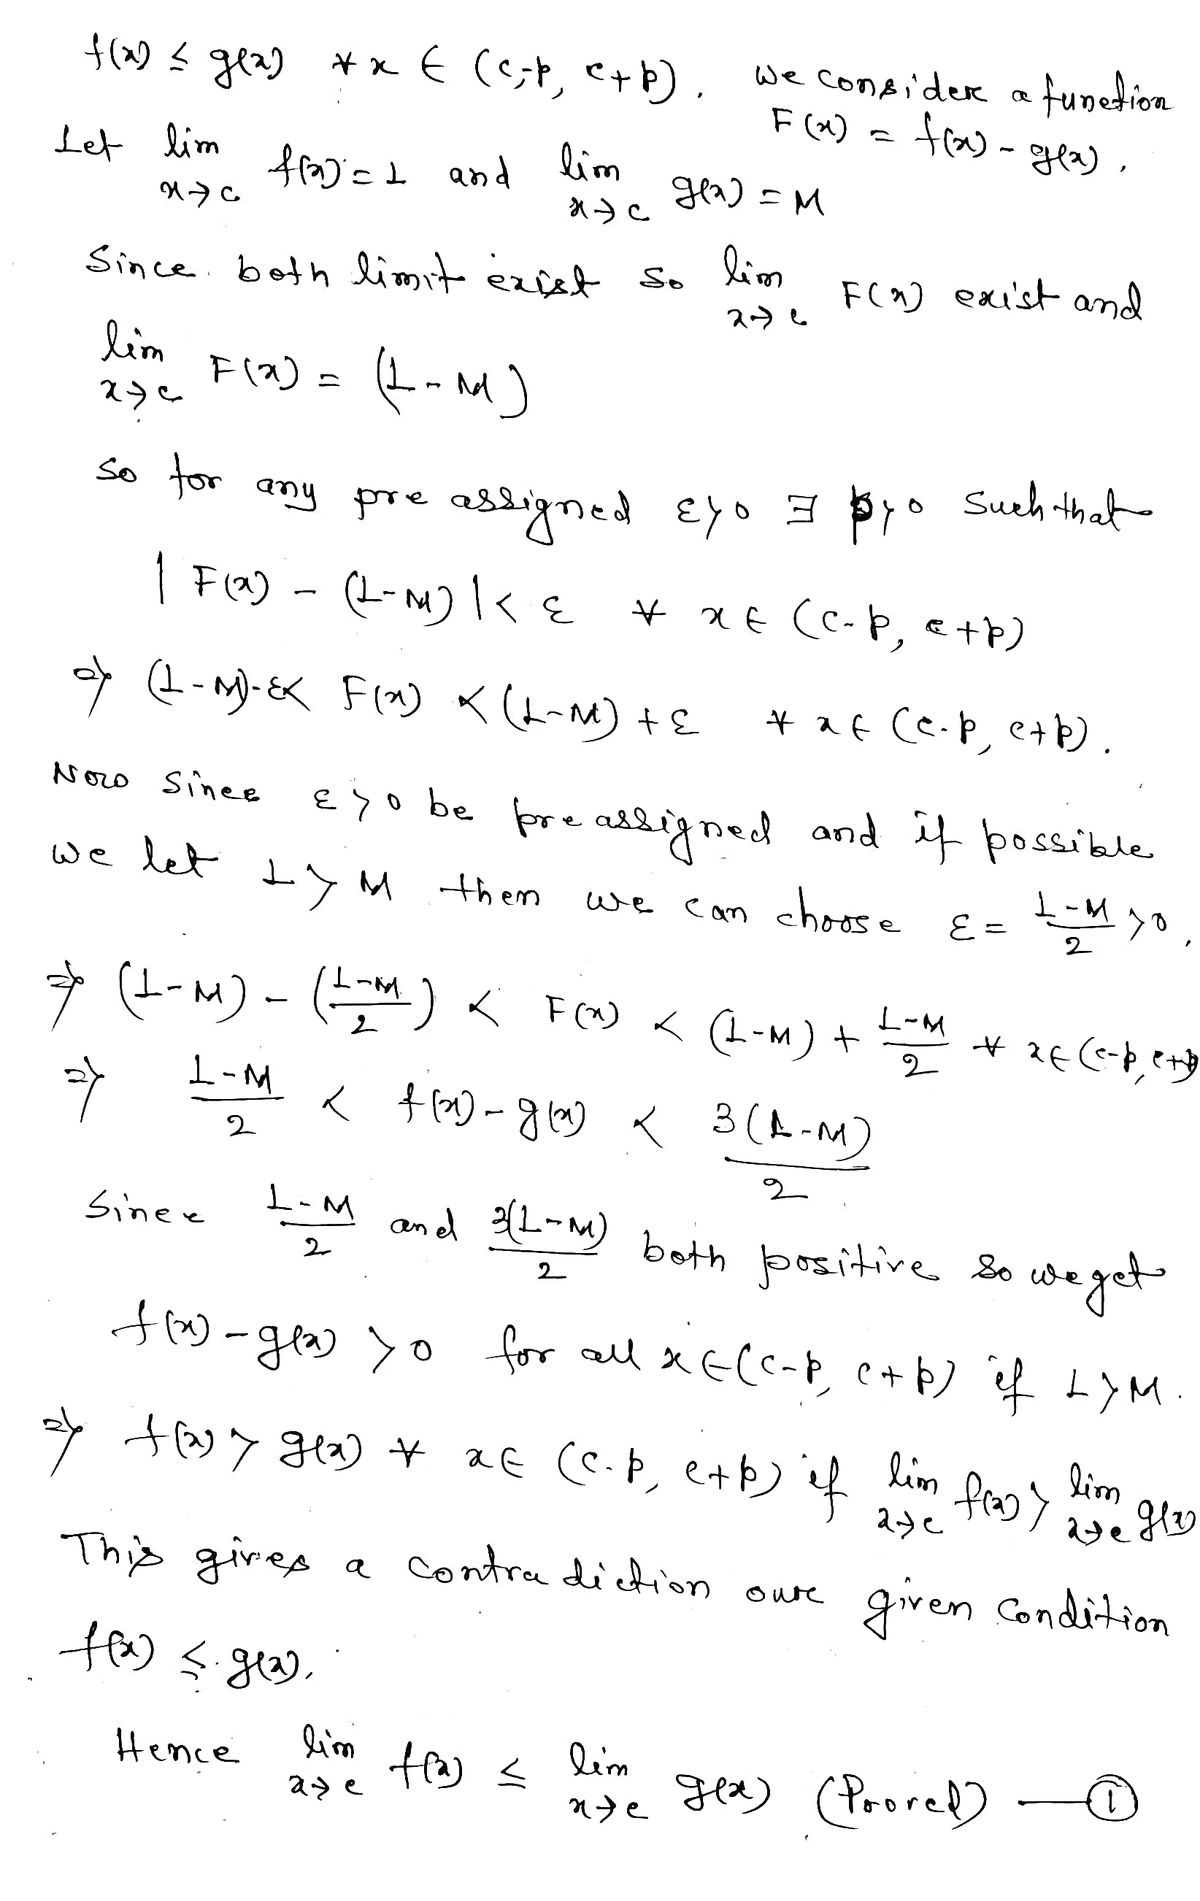 f(x) ≤ g(x) ∀ x ∈ (c-p, c+p). We consider a function
F(x) = f(x) - g(x).
Let lim x→c f(x) = L and lim x→c g(x) = M
Since both limit exist so lim x→c F(x) exist and
lim x→c F(x) = (L-M)
so for any pre assigned ε>0 ∃ p>0 such that
| F(x) - (L-M) | < ε ∀ x ∈ (c-p, c+p)
⇒ (L-M)-ε < F(x) < (L-M) + ε ∀ x ∈ (c-p, c+p).
Now since ε>0 be pre assigned and if possible
we let L > M then we can choose ε = (L-M)/2 > 0.
⇒ (L-M) - ((L-M)/2) < F(x) < (L-M) + (L-M)/2 ∀ x ∈ (c-p, c+p)
⇒ (L-M)/2 < f(x) - g(x) < 3(L-M)/2
Since (L-M)/2 and 3(L-M)/2 both positive so we get
f(x) - g(x) > 0 for all x ∈ (c-p, c+p) if L > M.
⇒ f(x) > g(x) ∀ x ∈ (c-p, c+p) if lim x→c f(x) > lim x→c g(x)
This gives a contradiction our given condition
f(x) ≤ g(x).
Hence lim x→c f(x) ≤ lim x→c g(x) (Proved) — ①